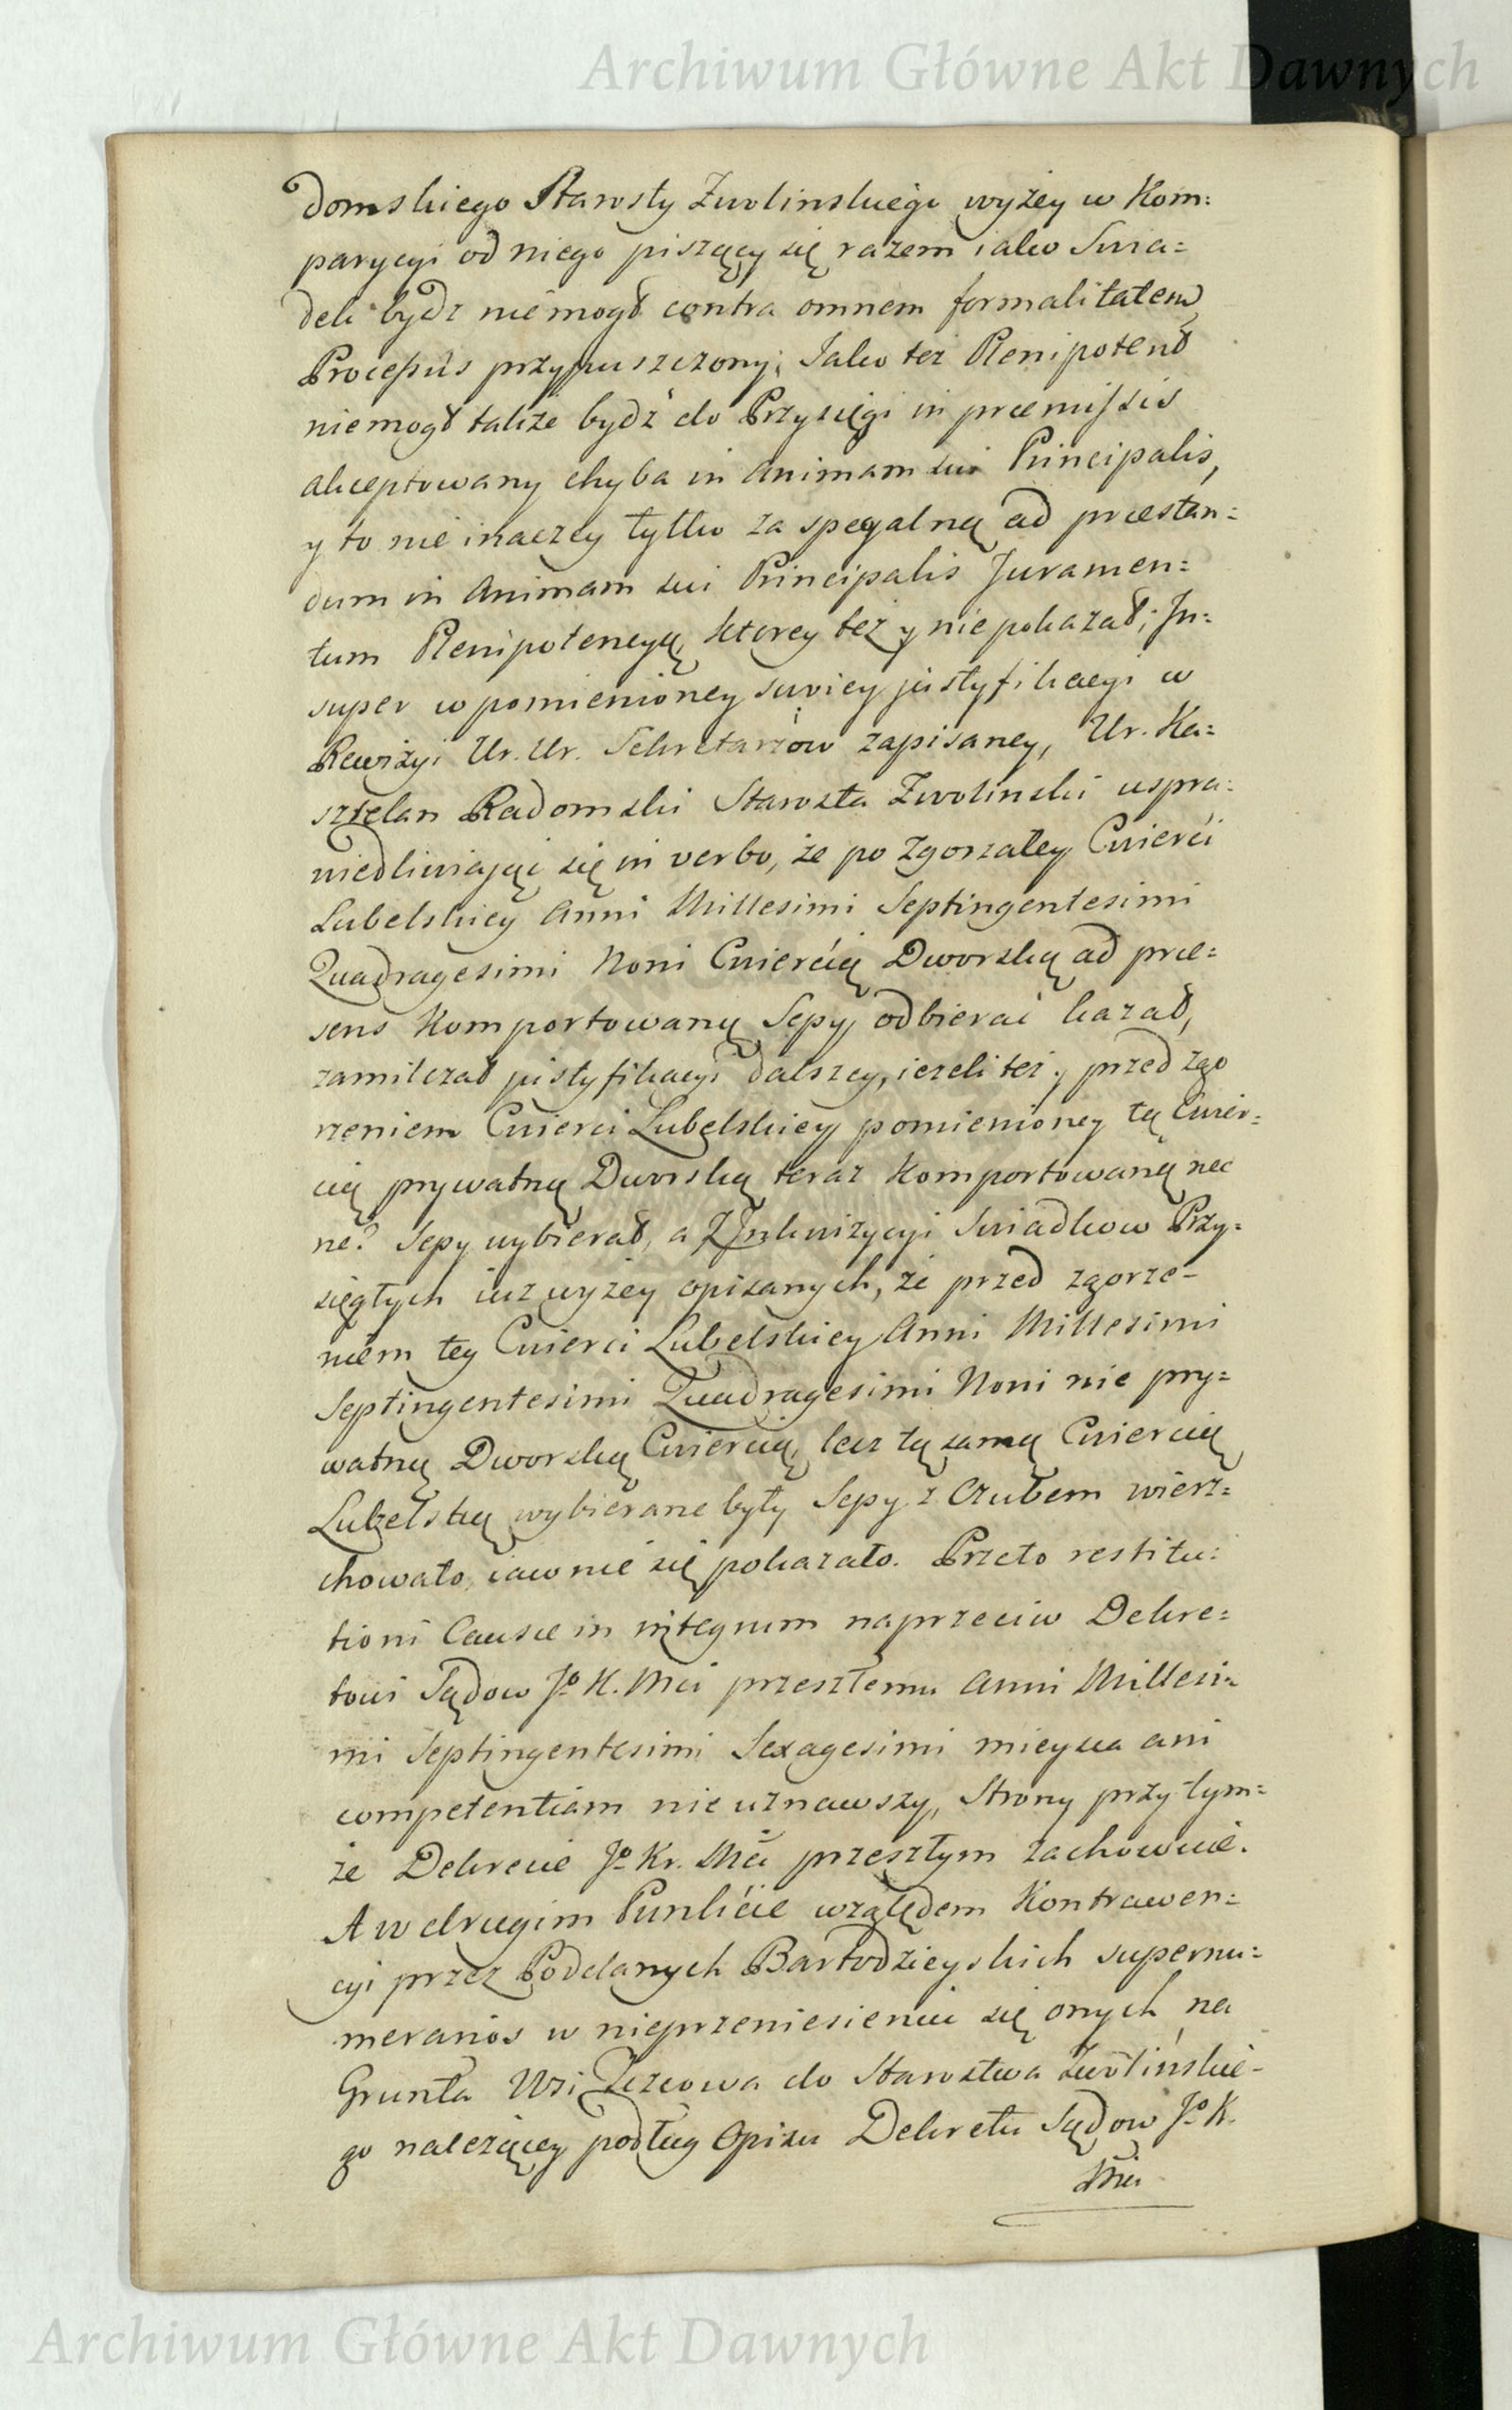 Archiwum Główne Akt Dawnych
domskiego Starosty Zwolinskiego wyżey w Kom:
parycyi od niego piszący się razem iako Swia=
dek bydz niemogł contra omnem formalitatem
Processus przypuszczony; Jako też Plenipotent
niemogł także bydź do Przysięgi in præmissis
akceptowany chyba in Animam sui Principalis,
y to nie inaczey tylko za specyalną ad præstan=
dum in Animam sui Principalis Juramen=
tum Plenipotencyą, ktorey też y nie pokazał; In=
super w pomienioney swoiey justyfikacyi w
Rewizyi Ur. Ur. Sekretarzow zapisaney, Ur. Ka=
sztelan Radomski Starosta Zwolinski uspra=
wiedliwiaiąc się in verbo, że po zgorzałey Cwierci
Lubelskiey Anni Millesimi Septingentesimi
Quadragesimi Noni Cwiercią Dworską ad præ=
sens Komportowaną Sepy odbierać kazał,
zamilczał justyfikacyi dalszey, ieżeli też y przed zgo
rzeniem Cwierci Lubelskiey pomienioney tą Cwier=
cią prywatną Dworską teraz Komportowaną nec
ne? Sepy wybierał, a z Inkwizycyi Swiadkow Przy=
sięgłych iuz wyżey opisanych, że przed zgorze=
niem tey Cwierci Lubelskiey Anni Millesimi
Septingentesimi Quadragesimi Noni nie pry=
watną Dworską Cwiercią, lecz tą samą Cwiercią
Lubelską wybierane były Sepy z Czubem wierz=
chowato, iawnie się pokazało. Przeto restitu=
tioni Causæ in integrum naprzeciw Dekre=
towi Sądow Jo K. Mci przeszłemu Anni Millesi=
mi Septingentesimi Sexagesimi mieysca ani
competentiam nie uznawszy, Strony przy tym=
że Dekrecie Jo Kr. Mci przeszłym zachowuie.
A w drugim Punkcie względem Kontrawen=
cyi przez Poddanych Bartodzieyskich supernu=
merarios w nieprzeniesieniu się onych na
Grunta Wsi do Starostwa Zwolińskie=
go należącey podług Opisu Dekretu Sądow Jo K.
Mci
Archiwum Główne Akt Dawnych